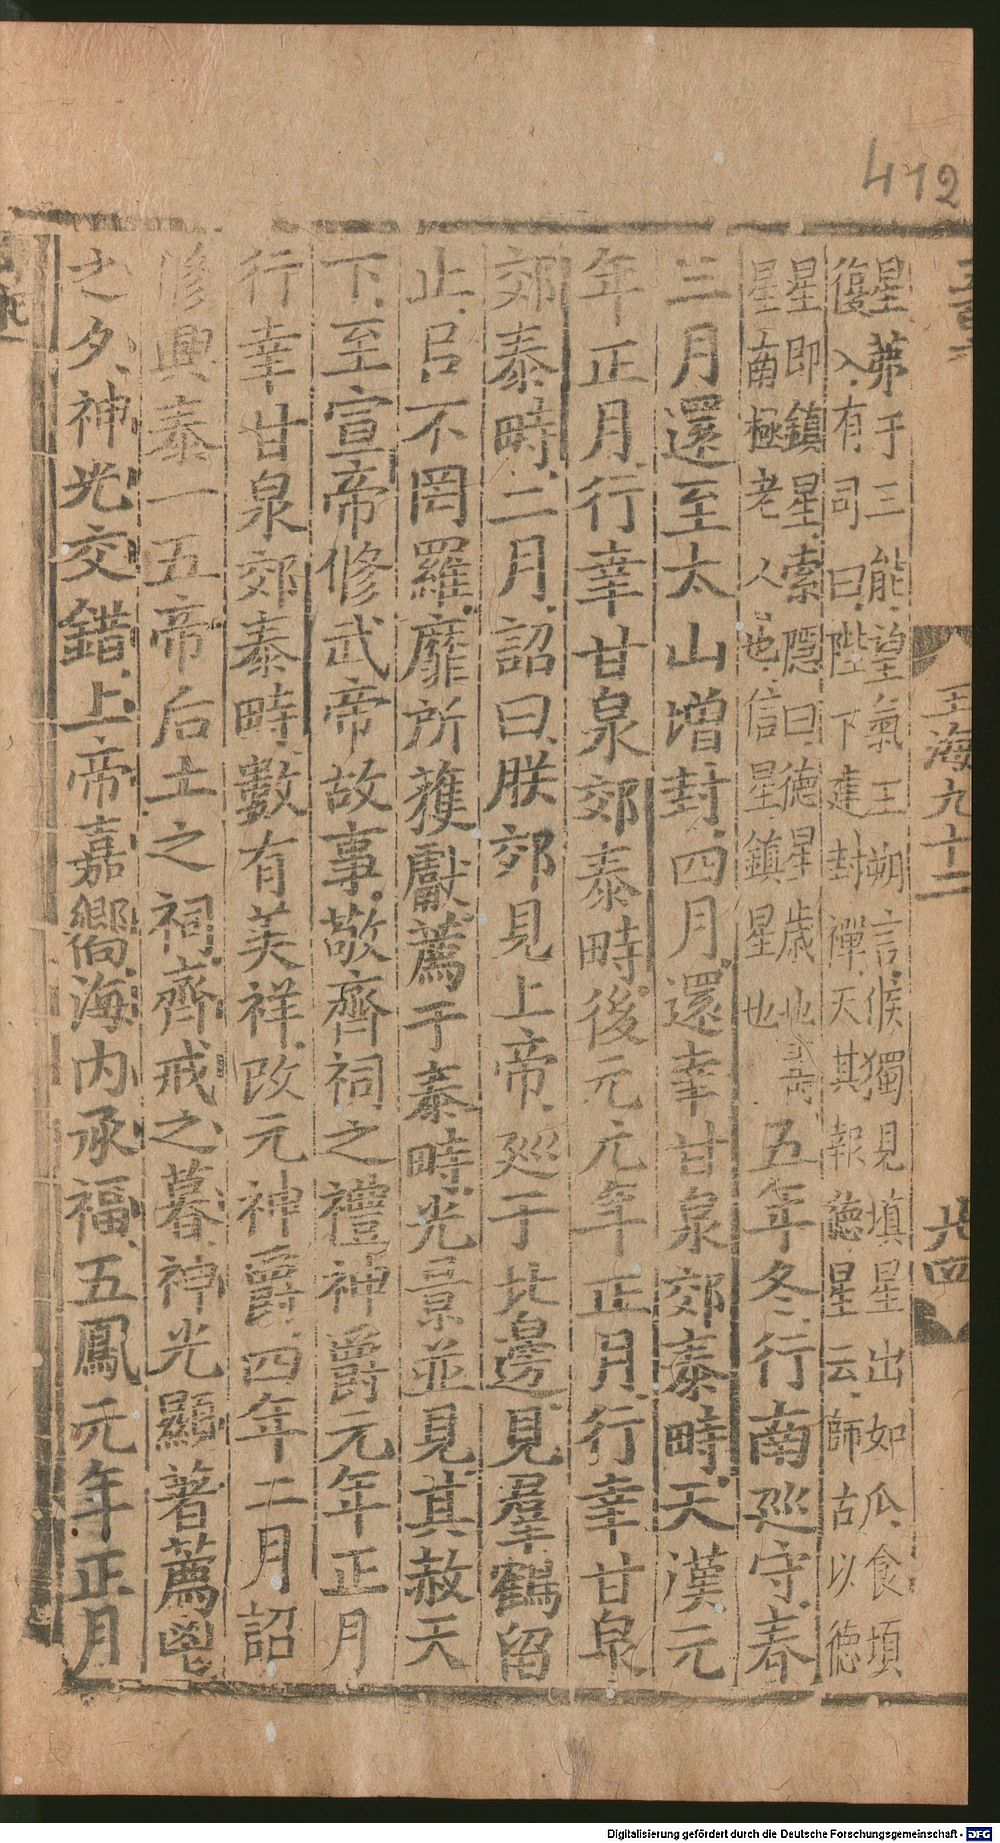 412
玉海九十二
九四
星茀于三能望氣王朔言候獨見填星出如瓜食頃
復入有司曰陛下建封禪天其報德星云師古以德
星即鎮星索隱曰德星歳也
星南極老人也信星鎮星也
五年冬行南巡守春
三月還至太山增封四月還幸甘泉郊泰畤天漢元
年正月行幸甘泉郊泰畤後元元年正月行幸甘泉
郊泰畤二月詔曰朕郊見上帝巡于北邊見羣鶴留
止㠯不罔羅靡所獲獻薦于泰畤光景並見其赦天
下至宣帝修武帝故事敬齊祠之禮神爵元年正月
行幸甘泉郊泰畤數有美祥改元神爵四年二月詔
修興泰一五帝后土之祠齊戒之暮神光顯著薦鬯
之夕神光交錯上帝嘉嚮海内承福五鳳元年正月
Digitalisierung gefördert durch die Deutsche Forschungsgemeinschaft - DFG